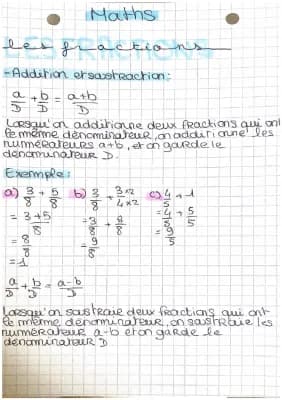 Maths
les fractions
LES FRACTIONS
- Addition et soustraction :
a/D + b/D = a+b/D
Lorsqu'on additionne deux fractions qui ont
le même dénominateur, on additionne les
numérateurs a+b, et on garde le
dénominateur D.
Exemple :
a) 3/8 + 5/8 b) 3/8 + 3×2/4×2 c) 4/5 + 1
= 3+5/8 = 3/8 + 8/8 = 4/5 + 5/5
= 8/8 = 9/8 = 9/5
= 1
a/D + b/D = a-b/D
Lorsqu'on soustraie deux fractions qui ont
le même dénominateur, on soustraie les
numérateur a-b et on garde le
dénominateur D